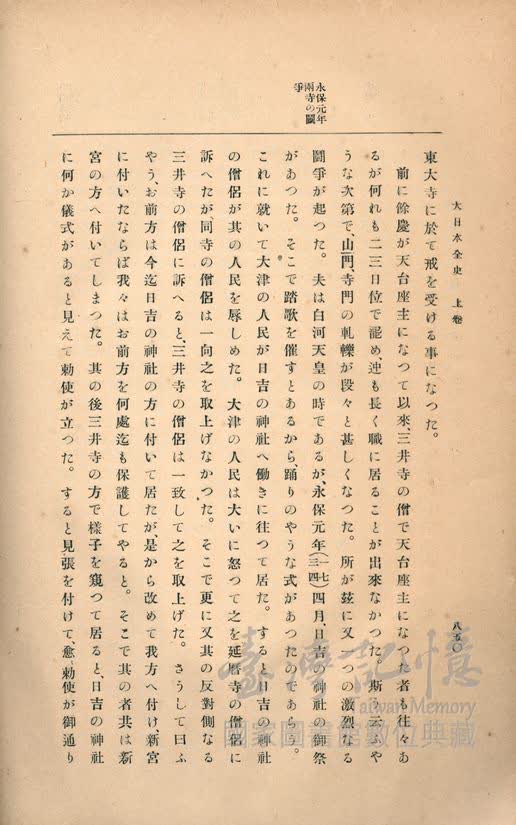 大日本全史　上卷
八五〇
永保元年
兩寺の鬪
爭
東大寺に於て戒を受ける事になつた。
前に餘慶が天台座主になつて以來、三井寺の僧で天台座主になつた者も往々あ
るが何れも二三日位で罷め、迚も長く職に居ることが出來なかつた。斯う云ふや
うな次第で、山門、寺門の軋轢が段々と甚しくなつた。所が茲に又一つの激烈なる
鬪爭が起つた。夫は白河天皇の時であるが、永保元年(一七三四)四月、日吉の神社の御祭
があつた。そこで踏歌を催すとあるから、踊りのやうな式があつたのであらう。
これに就いて大津の人民が日吉の神社へ働きに往つて居た。すると日吉の神社
の僧侶が其の人民を辱しめた。大津の人民は大いに怒つて之を延曆寺の僧侶に
訴へたが、同寺の僧侶は一向之を取上げなかつた。そこで更に又其の反對側なる
三井寺の僧侶に訴へると、三井寺の僧侶は一致して之を取上げた。さうして曰ふ
やう、お前方は今迄日吉の神社の方に付いて居たが、是から改めて我方へ付け、新宮
に付いたならば我々はお前方を何處迄も保護してやると。そこで其の者共は新
宮の方へ付いてしまつた。其の後三井寺の方で樣子を窺つて居ると、日吉の神社
に何か儀式があると見えて勅使が立つた。すると見張を付けて、愈〻勅使が御通り
臺灣記憶
Taiwan Memory
國家圖書館數位典藏